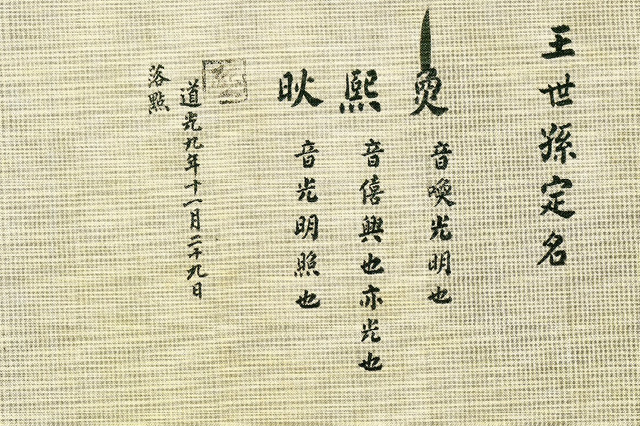 王世孫定名
奐 音喚光明也
熙 音僖興也亦光也
音光明照也
道光九年十一月二十九日
落點